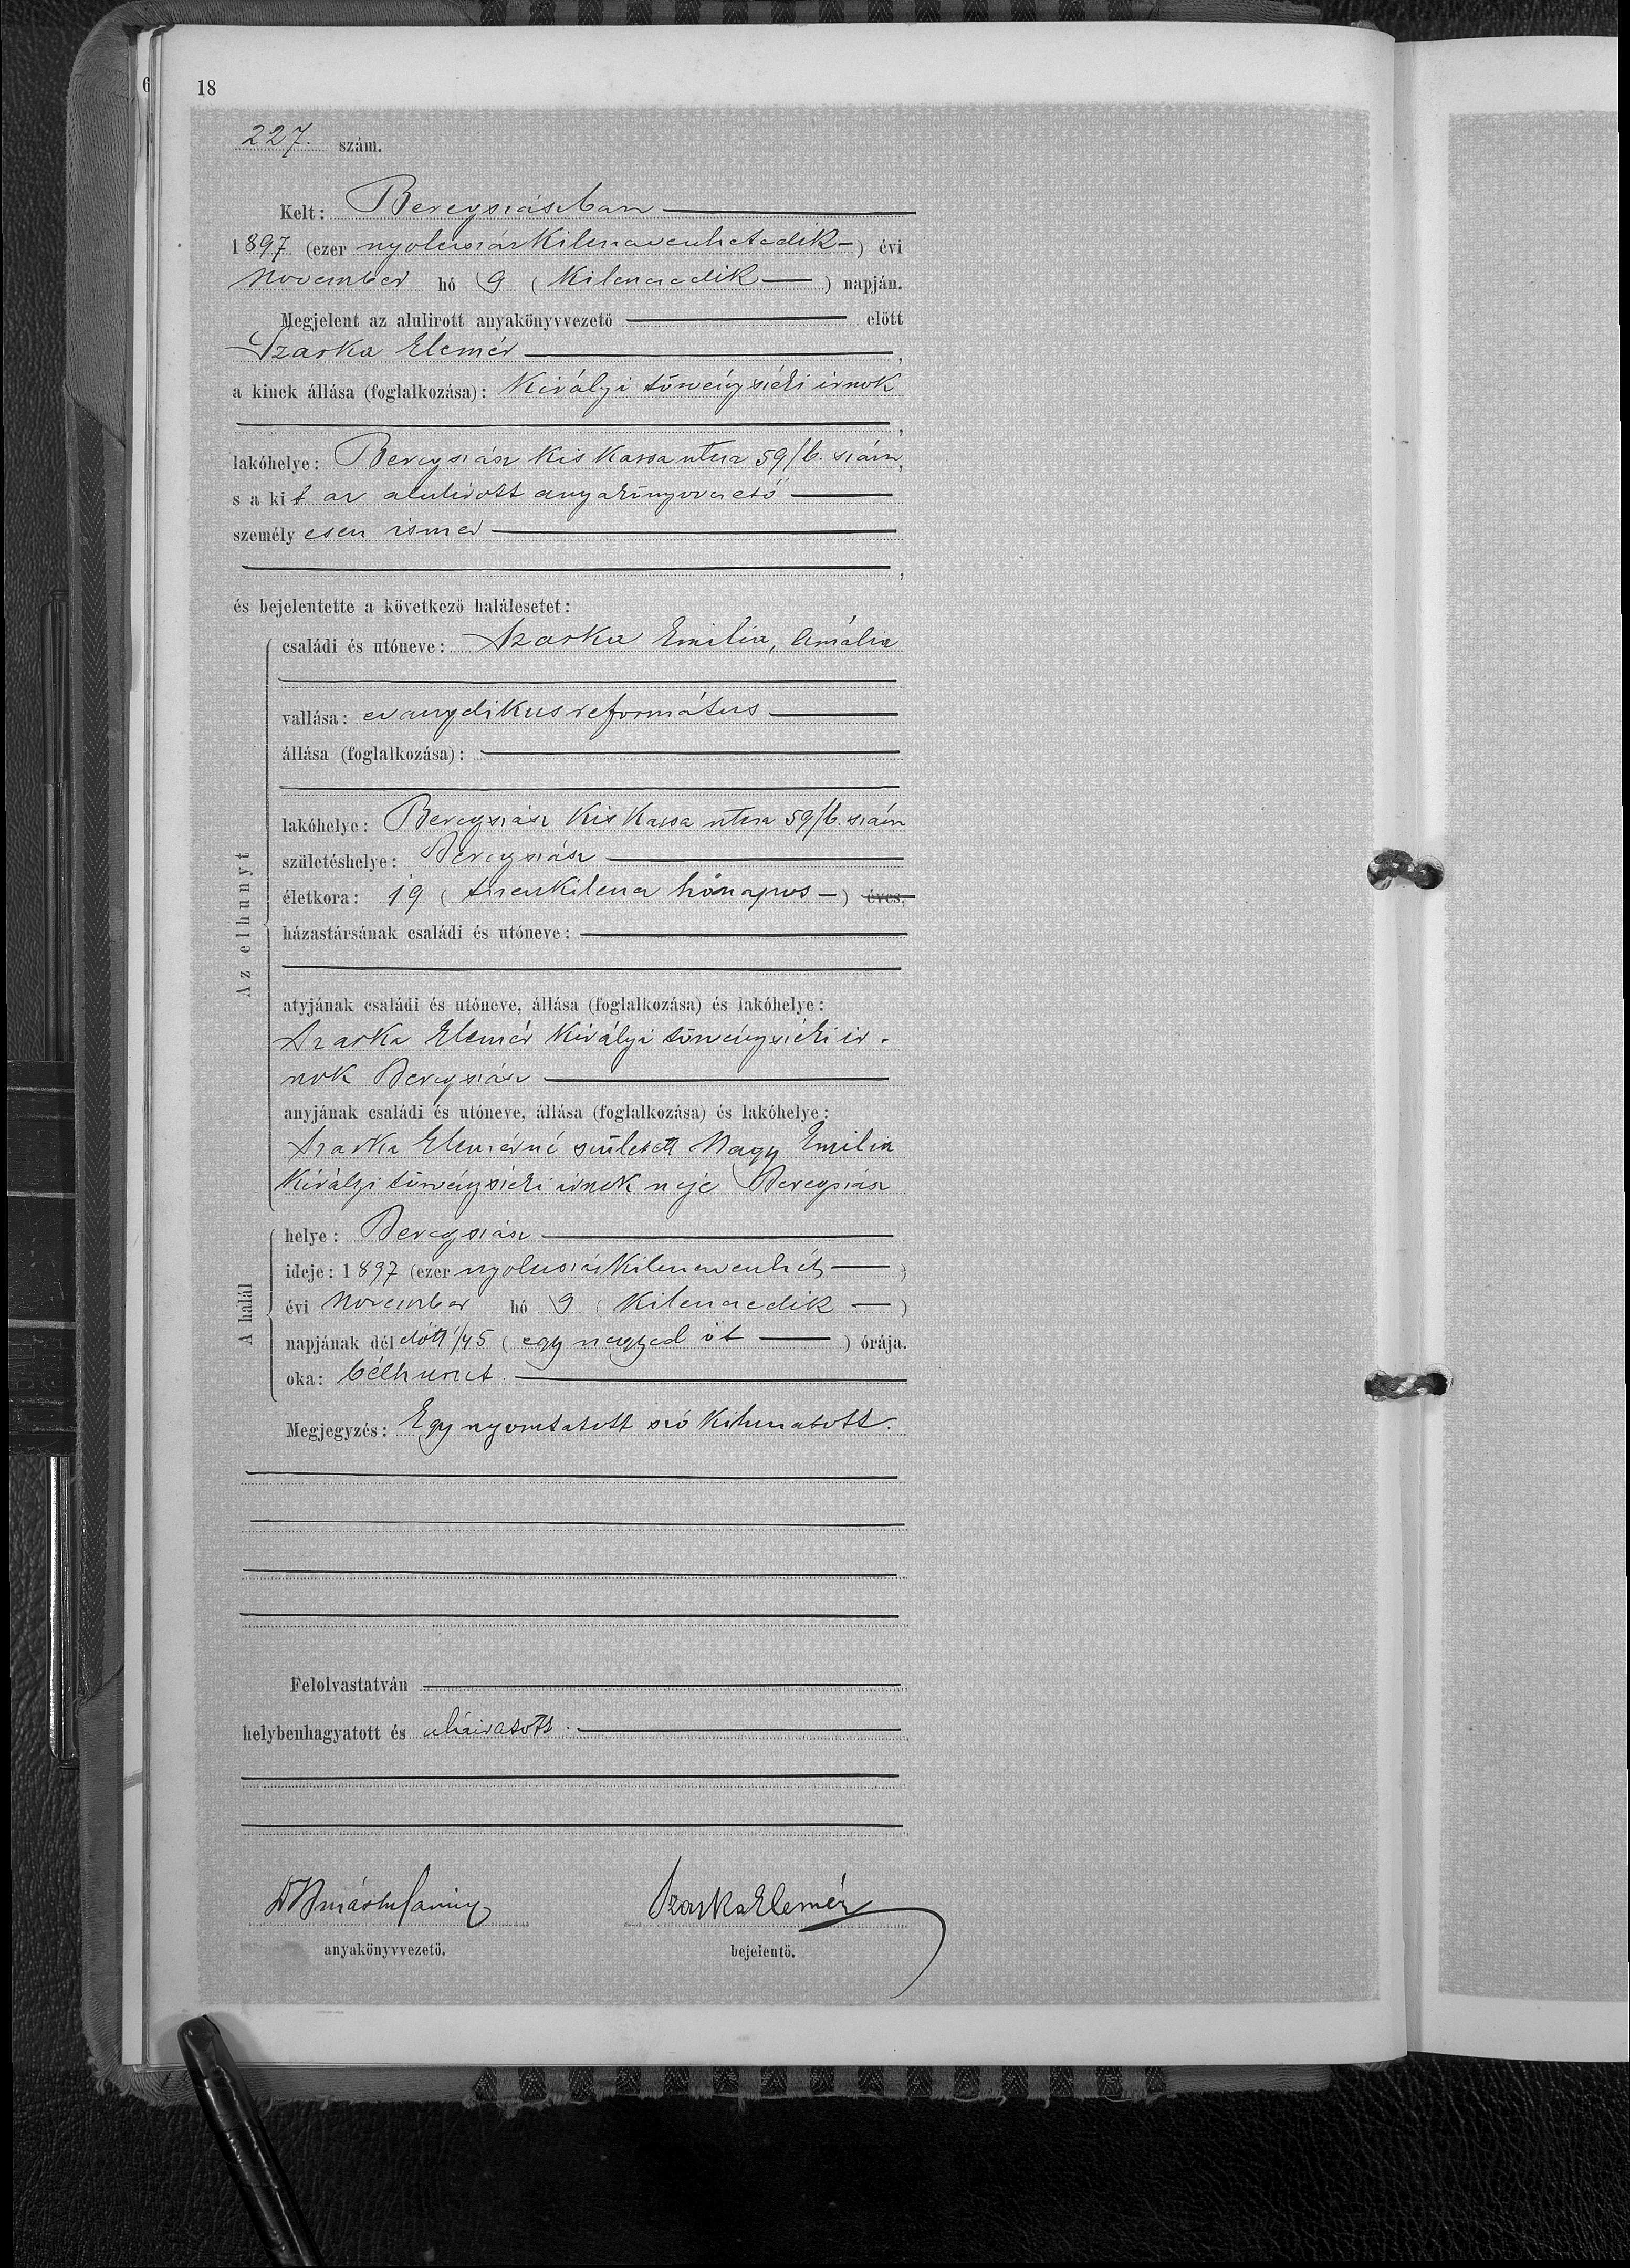 6
18
227. szám.
Kelt: Beregszászban
1897 (ezer nyolczszázkilenczvenhetedik) évi
November hó 9 (kilenczedik) napján.
Megjelent az alulirott anyakönyvvezető előtt
Szarka Elemér,
a kinek állása (foglalkozása): királyi törvényszéki irnok
,
lakóhelye: Beregszász Kis Kassa utcza 59/b. szám,
s a kit az alulirott anyakönyvvezető
személyesen ismer
,
és bejelentette a következő halálesetet:
Az elhunyt
családi és utóneve: Szarka Emilia, Amália
vallása: evangelikus református
állása (foglalkozása):
lakóhelye: Beregszász Kis Kassa utcza 59/b. szám
születéshelye: Beregszász
életkora: 19 (tizenkilencz hónapos) éves.
házastársának családi és utóneve:
atyjának családi és utóneve, állása (foglalkozása) és lakóhelye:
Szarka Elemér királyi törvényszéki ir-
nok Beregszász
anyjának családi és utóneve, állása (foglalkozása) és lakóhelye:
Szarka Elemérné született Nagy Emilia
királyi törvényszéki irnok neje Beregszász
A halál
helye: Beregszász
ideje: 1897 (ezer nyolczszázkilenczvenhét)
évi November hó 9 (kilenczedik)
napjának dél előtt 1/4 5 (egy negyed öt) órája.
oka: bélhurut.
Megjegyzés: Egy nyomtatott szó kihuzatott.
Felolvastatván
helybenhagyatott és aláiratott.
Szarka Elemér
anyakönyvvezető. bejelentő.